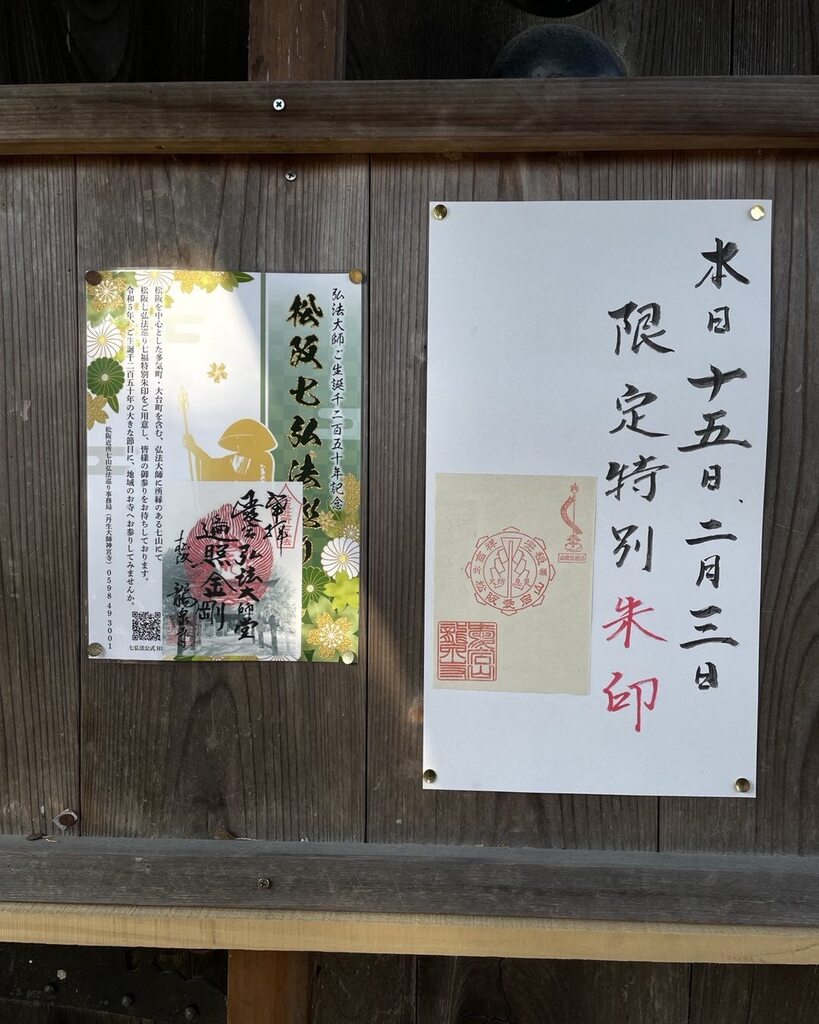 本日十五日、二月三日
限定特別朱印
弘法大師ご生誕千二百五十年記念
松阪七弘法巡り
松阪を中心とした多気町・大台町を含む、弘法大師に所縁のある七山にて
松阪七弘法巡り七福特別朱印をご用意し、皆様の御参りをお待ちしております。
令和5年、ご生誕千二百五十年の大きな節目に、地域のお寺へお参りしてみませんか。
松阪近郊七山弘法巡り事務局(丹生大師神宮寺)0598 49 3001
七弘法公式HP
弘法大師堂
遍照金剛